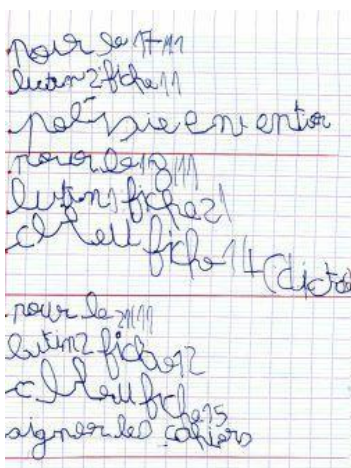 pour le 17/11
lutin 2 fiche 11
poésie en entier
pour le 18/11
lutin 1 fiche 21
cl bleu fiche 14 (dictée
pour le 21/11
lutin 2 fiche 12
cl bleu fiche 15
signer les cahiers